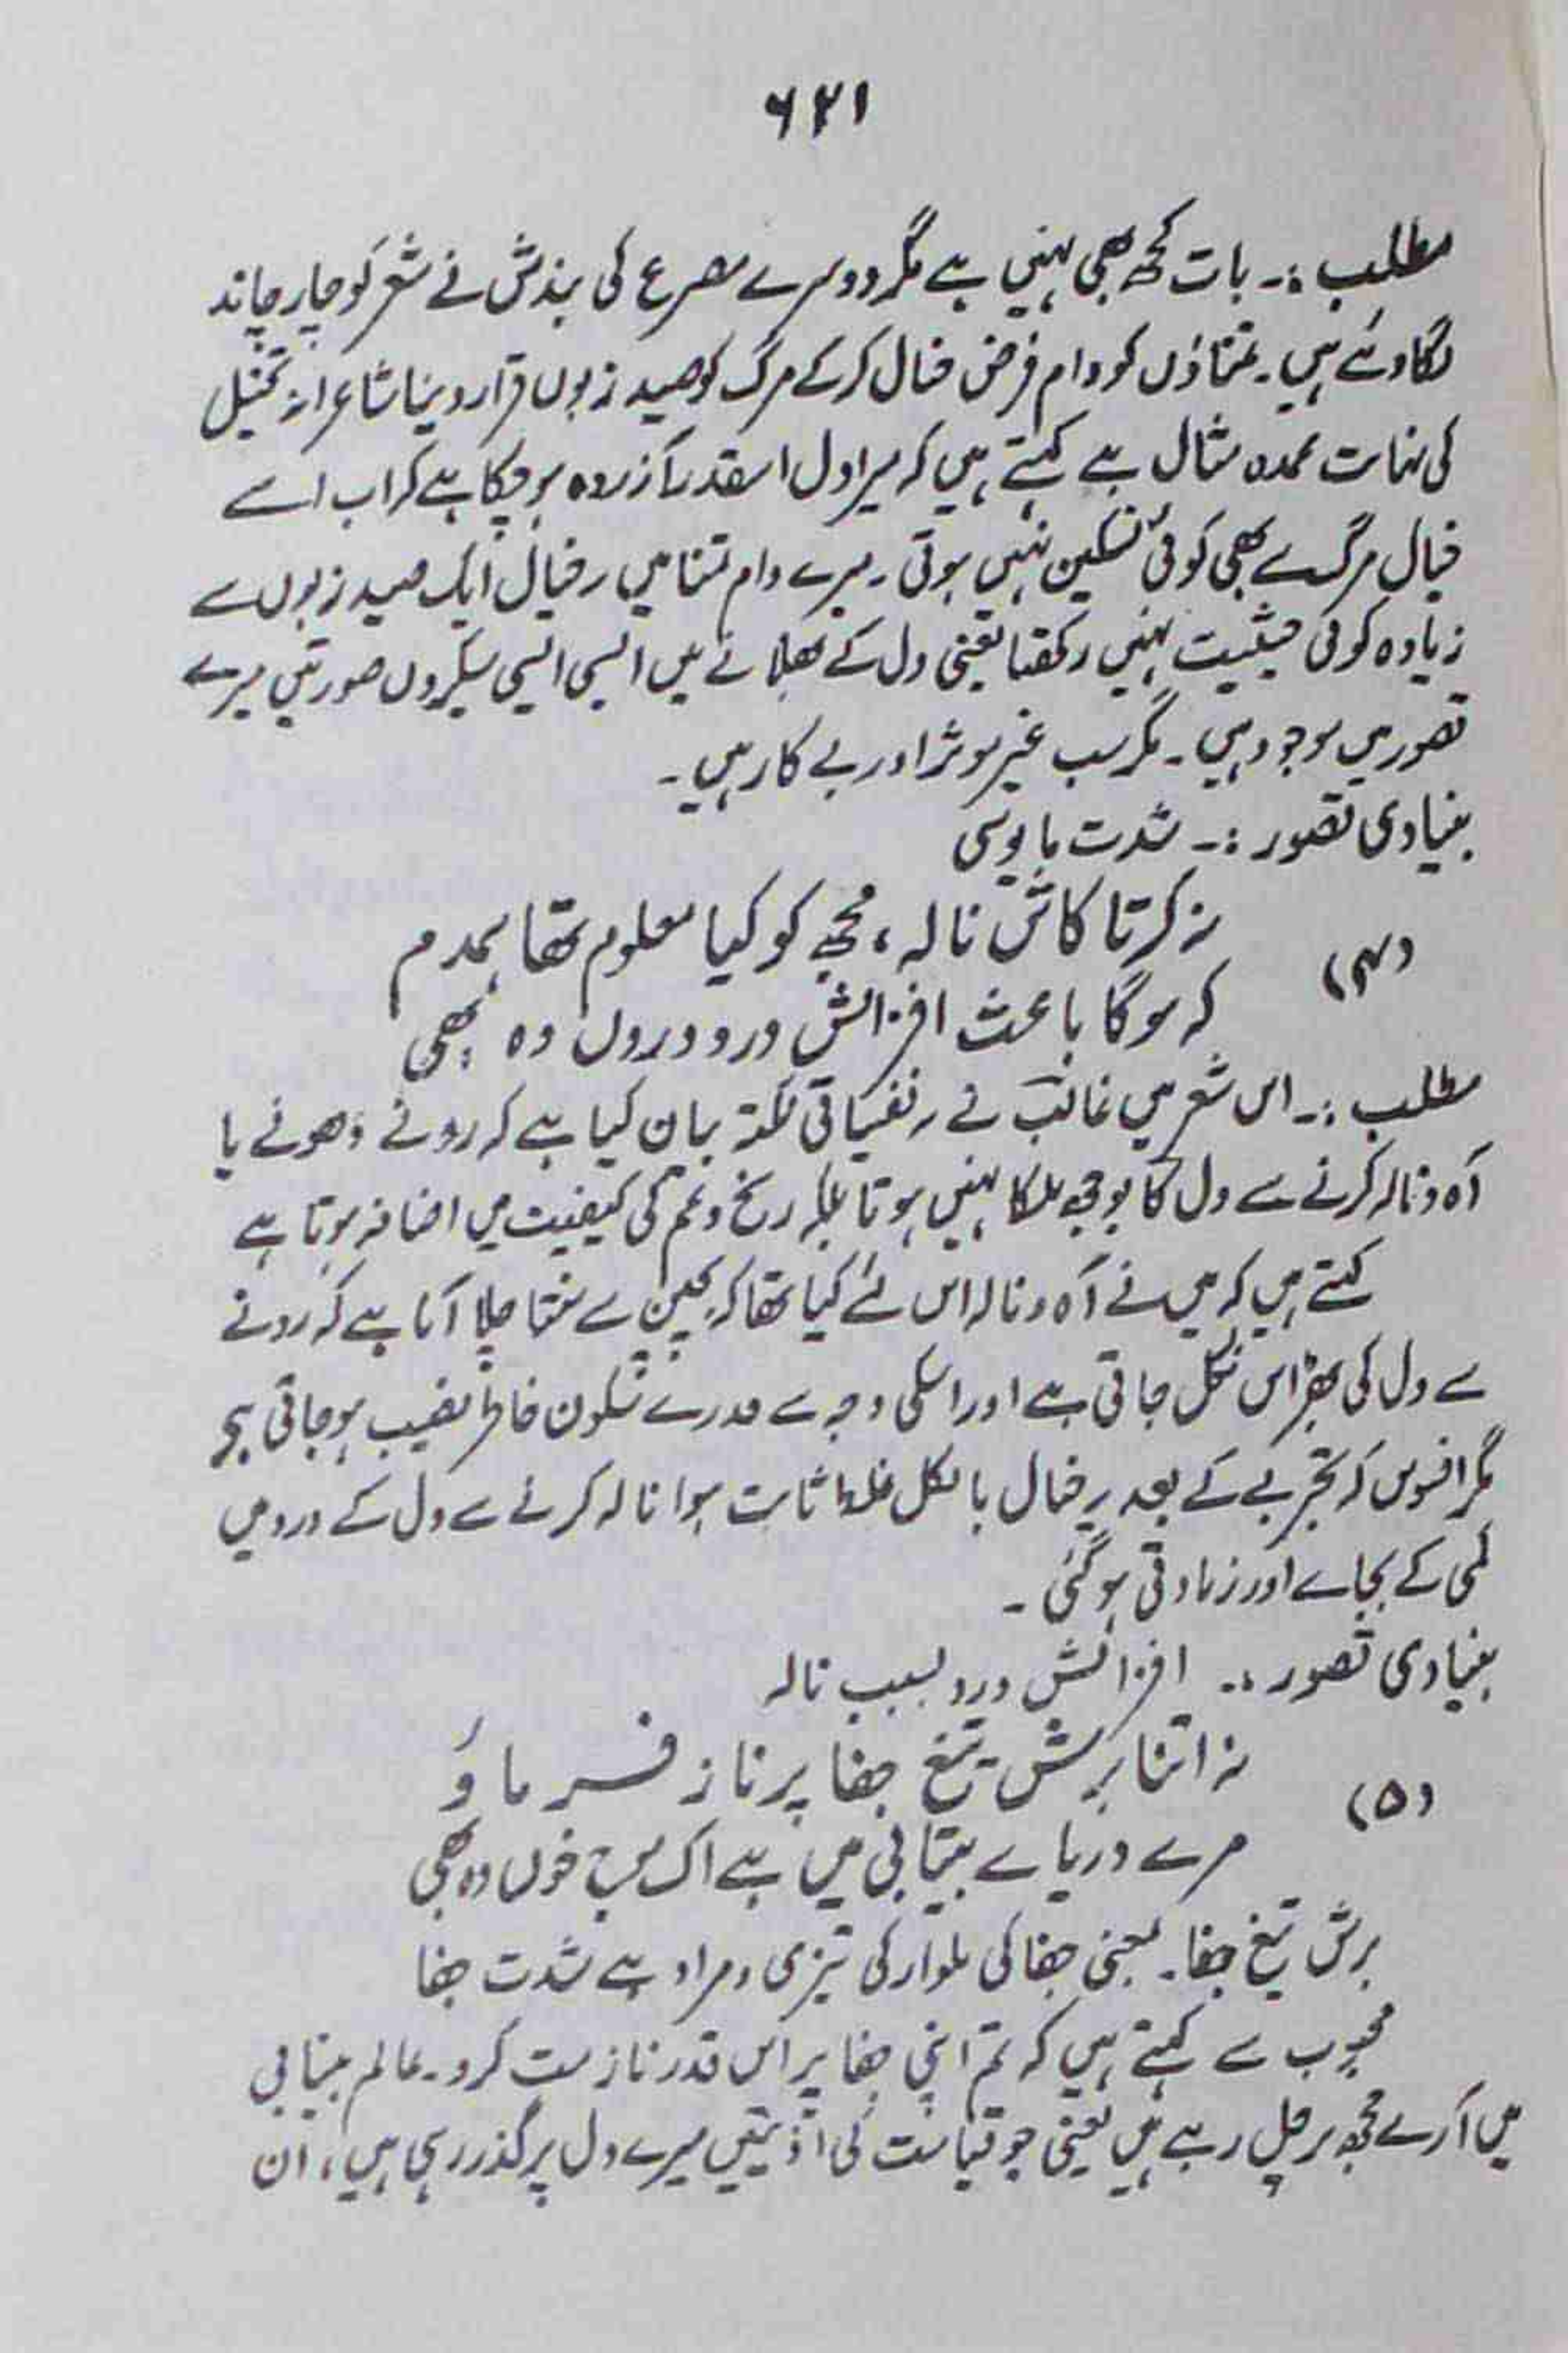 ۶۲۱
مطلب :۔ بات کچھ بھی نہیں ہے مگر دوسرے مصرع کی بندش نے شعر کو چار چاند
لگا دئے ہیں۔ تمناؤں کو دام فرض خیال کر کے مرگ کو صید زبوں قرار دینا شاعرانہ تخیل
کی نہایت عمدہ مثال ہے کہتے ہیں کہ میرا دل اسقدر آزردہ ہو چکا ہے کہ اب اسے
خیال مرگ سے بھی کوئی تسکین نہیں ہوتی۔ میرے دام تمنا میں یہ خیال ایک صید زبوں سے
زیادہ کوئی حیثیت نہیں رکھتا یعنی دل کے بھلانے میں ایسی ایسی سیکڑوں صورتیں میرے
تصور میں موجود ہیں۔ مگر سب غیر موثر اور بے کار ہیں۔
بنیادی تصور :۔ شدت مایوسی
(۴) نہ کرتا کاش نالہ، مجھ کو کیا معلوم تھا ہمدم
کہ ہوگا باعث افزائش درد دروں وہ بھی
مطلب :۔ اس شعر میں غالب نے یہ نفسیاتی نکتہ بیان کیا ہے کہ رونے دھونے یا
آہ و نالہ کرنے سے دل کا بوجھ ہلکا نہیں ہوتا بلکہ رنج و غم کی کیفیت میں اضافہ ہوتا ہے
کہتے ہیں کہ میں نے آہ و نالہ اس لئے کیا تھا کہ بچپن سے سنتا چلا آتا ہے کہ رونے
سے دل کی بھڑاس نکل جاتی ہے اور اسکی وجہ سے قدرے سکون خاطر نصیب ہو جاتی ہے
مگر افسوس کہ تجربے کے بعد یہ خیال بالکل غلط ثابت ہوا نالہ کرنے سے دل کے درد میں
کمی کے بجاے اور زیادتی ہو گئی ۔
بنیادی تصور :۔ افزائش درد بسبب نالہ
(۵) نہ اتنا برش تیغ جفا پر ناز فرماؤ
مرے دریاے بیتابی میں ہے اک موج خوں وہ بھی
برش تیغ جفا۔ یعنی جفا کی تلوار کی تیزی، مراد ہے شدت جفا
محبوب سے کہتے ہیں کہ تم اپنی جفا پر اس قدر ناز مت کرو۔ عالم بیتابی
میں آرے مجھ پر چل رہے ہیں یعنی جو قیامت کی اذیتیں میرے دل پر گذر رہی ہیں، ان